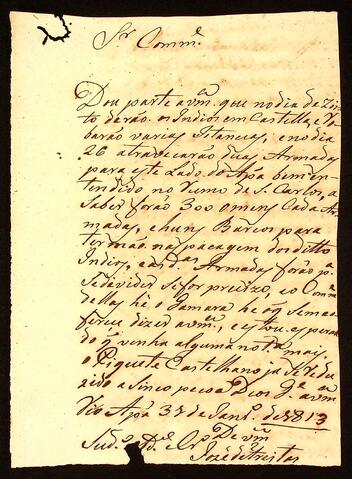 Sr Comme
Dou parte a vm. que no dia dezoi
to derão os Indios em Castella e
barão varias Stancias, e no dia
26 atravecarão duas Armadas
para este lado do Apá bem en-
tendido no Rumo de S. Carlos, a
Saber forão 300 omens Cada Ar-
mada, e huns Barcos para
terem na pacagem dos ditto
Indios, e as das Armadas forão pa
se devider se for precizo, e o Comm
dellas he o Jamara he oq se me a
fereu dizer a vm, e estou esperan
do q venha alguma nota. mais.
o Piquete Castelhano ja se redu
zido a Sinco pecoas Deos Ge a vm
Rio Apá 31 de Janro de 1813
De vm
Sudo
José de Freitas